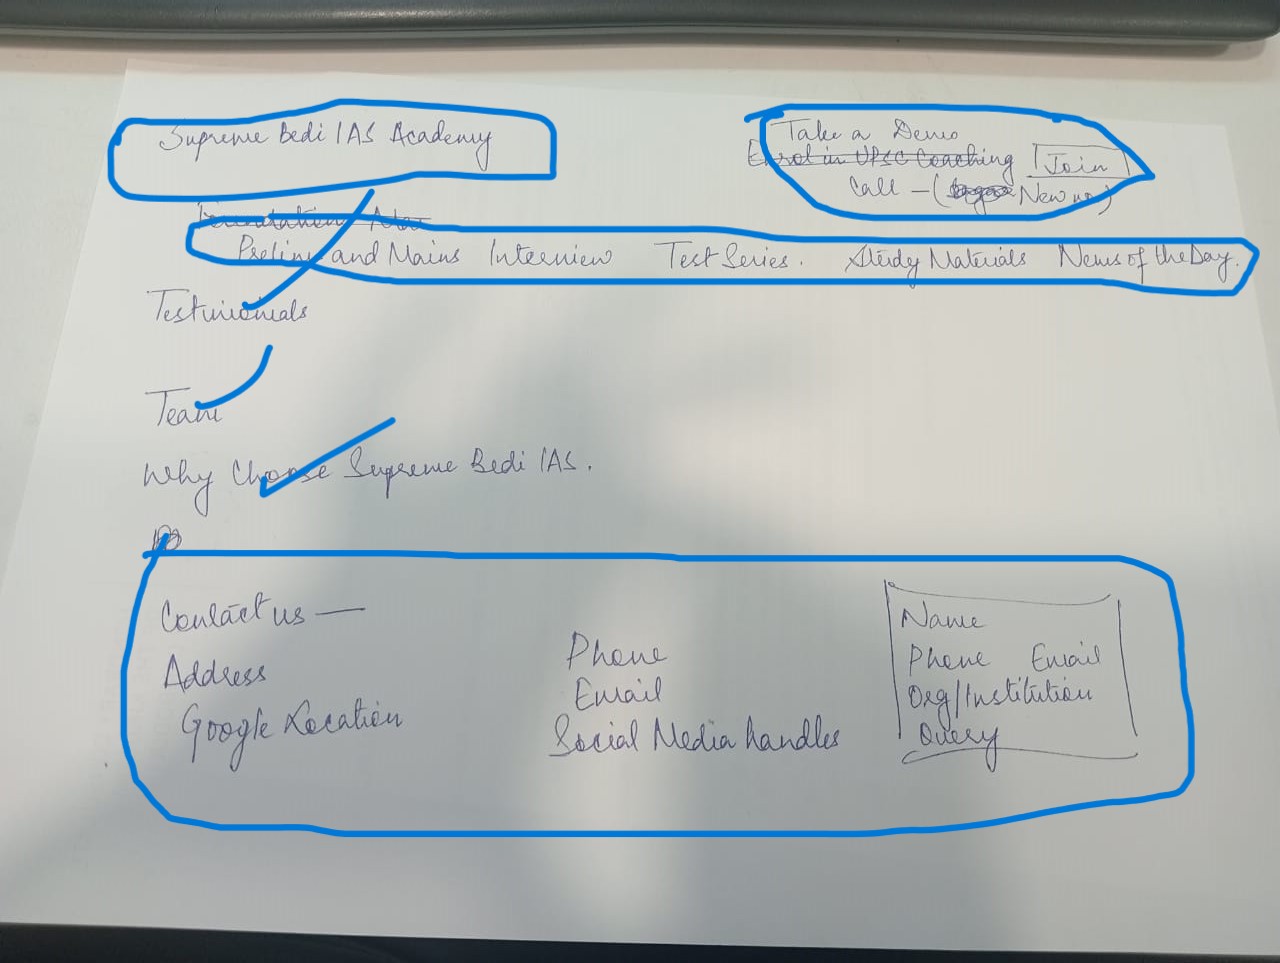 Supreme Bedi IAS Academy
Take a Demo
Enrol in UPSC Coaching Join
Call - ( New no)
Foundation
Prelims and Mains Interview Test Series. Study Materials News of the Day.
Testimonials
Team
Why Choose Supreme Bedi IAS.
Contact us —
Address
Google Location
Phone
Email
Social Media handles
Name
Phone Email
Org/Institution
Query